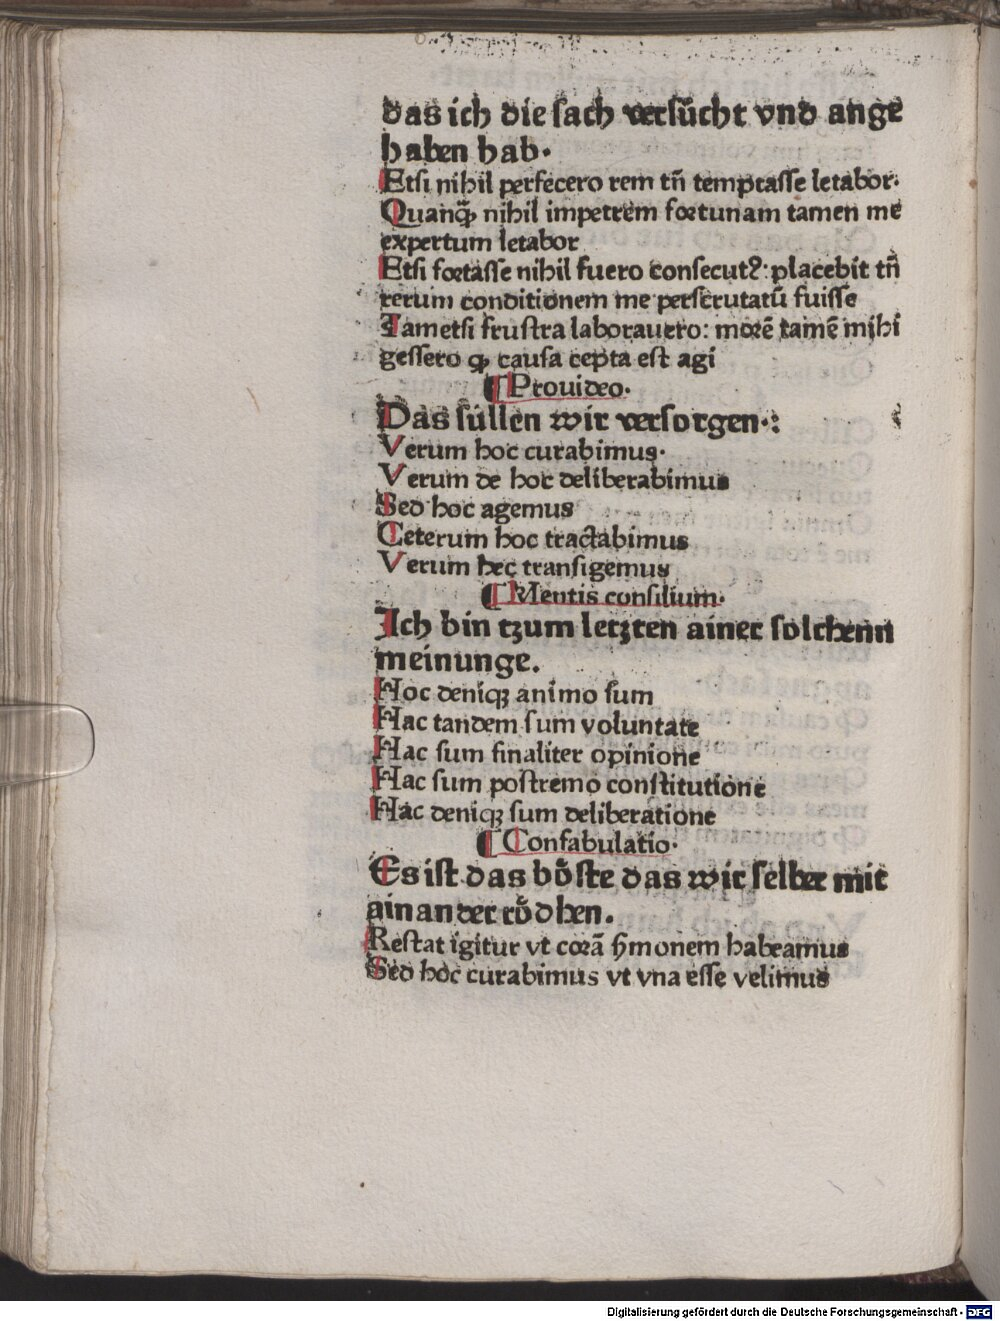 das ich die sach versůcht vnd ange
haben hab.
Etsi nihil perfecero rem tñ temptasse letabor.
Quanꝗ̃ nihil impetrem fortunam tamen me
expertum letabor
Etsi fortasse nihil fuero consecutꝰ: placebit tñ
rerum conditionem me perscrutatũ fuisse
Tametsi frustra laborauero: morẽ tamẽ mihi
gessero ꝙ causa cepta est agi
¶ Prouideo.
Das sullen wir versorgen.:
Verum hoc curabimus.
Verum de hoc deliberabimus
Sed hoc agemus
Ceterum hoc tractabimus
Verum hec transigemus
¶ Mentis consilium.
Ich bin tzum letzten ainer solchenn
meinunge.
Hoc deniqꝫ animo sum
Hac tandem sum voluntate
Hac sum finaliter opinione
Hac sum postremo constitutione
Hac deniqꝫ sum deliberatione
¶ Confabulatio.
Es ist das bo᷑ste das wir selber mit
ainander ro᷑dhen.
Restat igitur vt corã ẜmonem habeamus
Sed hoc curabimus vt vna esse velimus
Digitalisierung gefördert durch die Deutsche Forschungsgemeinschaft - DFG